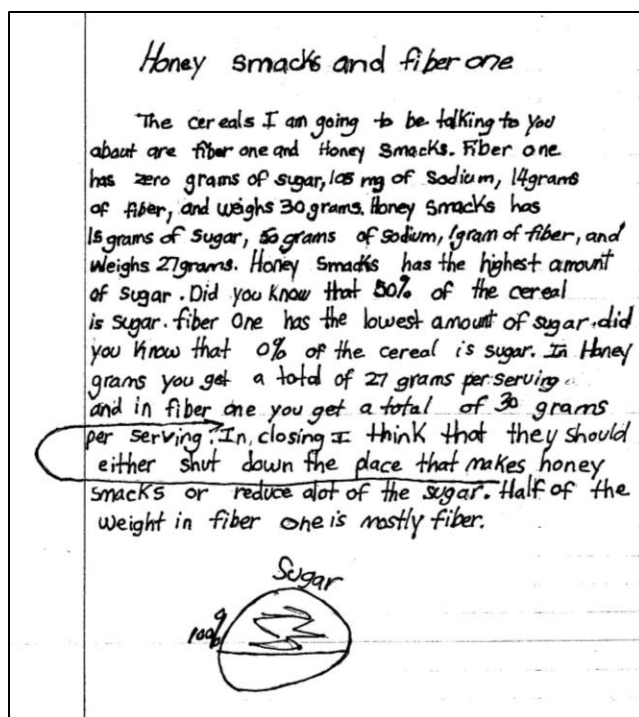 Honey smacks and fiber one
The cereals I am going to be talking to you
about are fiber one and Honey Smacks. Fiber one
has zero grams of sugar, 105 mg of Sodium, 14grams
of fiber, and weighs 30 grams. Honey Smacks has
15 grams of Sugar, 50 grams of sodium, 1gram of fiber, and
Weighs 27grams. Honey Smacks has the highest amount
of sugar. Did you Know that 50% of the cereal
is sugar. fiber One has the lowest amount of sugar. did
you Know that 0% of the cereal is sugar. In Honey
grams you get a total of 27 grams per serving
and in fiber one you get a total of 30 grams
per serving. In, closing I think that they should
either shut down the place that makes honey
smacks or reduce alot of the sugar. Half of the
weight in fiber one is mostly fiber.
Sugar
100%